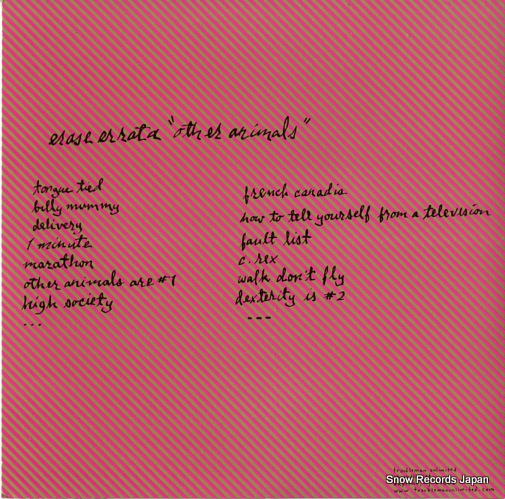 erase errata "other animals"
tongue tied
billy mummy
delivery
1 minute
marathon
other animals are #1
high society
...
french canadia
how to tell yourself from a television
fault list
c. rex
walk don't fly
dexterity is #2
---
troubleman unlimited
Snow Records Japan
www.troublemanunlimited.com